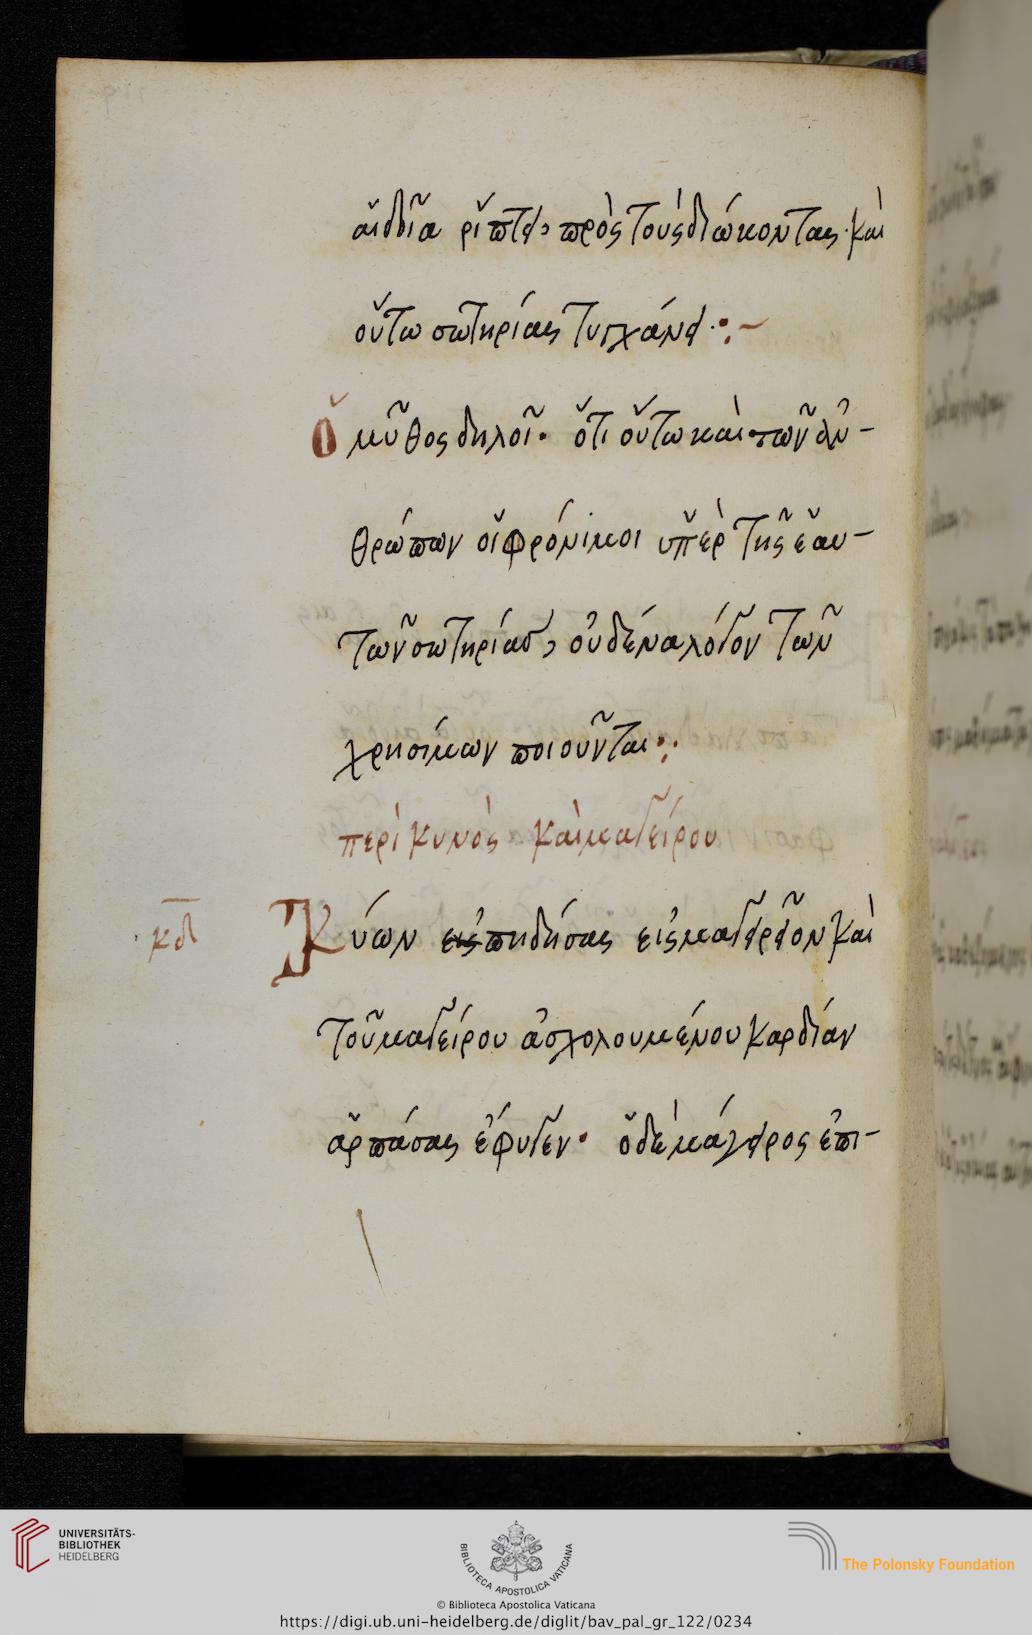 αἰδοῖα ῥίπτει πρὸς τοὺς διώκοντας· καὶ
οὕτω σωτηρίας τυγχάνει :~
Ὁ μῦθος δηλοῖ· ὅτι οὕτω καὶ τῶν ἀν-
θρώπων οἱ φρόνιμοι ὑπὲρ τῆς ἑαυ-
τῶν σωτηρίας, οὐδένα λόγον τῶν
χρημάτων ποιοῦνται :·
περὶ κυνὸς καὶ μαγείρου
κδ
Κύων εἰσπηδήσας εἰς μαγειρεῖον καὶ
τοῦ μαγείρου ἀσχολουμένου καρδίαν
ἁρπάσας ἔφυγεν· ὁ δὲ μάγειρος ἐπι-
UNIVERSITÄTS-
BIBLIOTHEK
HEIDELBERG
BIBLIOTECA APOSTOLICA VATICANA
The Polonsky Foundation
© Biblioteca Apostolica Vaticana
https://digi.ub.uni-heidelberg.de/diglit/bav_pal_gr_122/0234